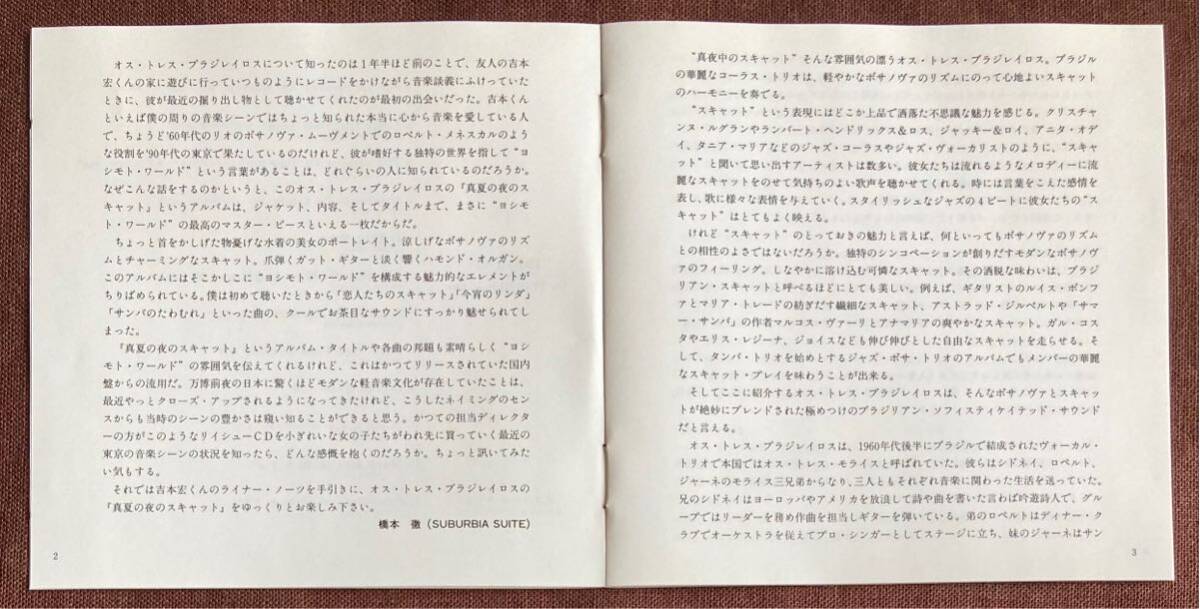 オス・トレス・ブラジレイロスについて知ったのは１年半ほど前のことで、友人の吉本
宏くんの家に遊びに行っていつものようにレコードをかけながら音楽談義にふけっていた
ときに、彼が最近の掘り出し物として聴かせてくれたのが最初の出会いだった。吉本くん
といえば僕の周りの音楽シーンではちょっと知られた本当に心から音楽を愛している人
で、ちょうど'60年代のリオのボサノヴァ・ムーヴメントでのロベルト・メネスカルのよう
な役割を'90年代の東京で果たしているのだけれど、彼が嗜好する独特の世界を指して“ヨ
シモト・ワールド”という言葉があることは、どれぐらいの人に知られているのだろうか。
なぜこんな話をするのかというと、このオス・トレス・ブラジレイロスの『真夏の夜のス
キャット』というアルバムは、ジャケット、内容、そしてタイトルまで、まさに“ヨシモ
ト・ワールド”の最高のマスター・ピースといえる一枚だからだ。
ちょっと首をかしげた物憂げな水着の美女のポートレイト。涼しげなボサノヴァのリズ
ムとチャーミングなスキャット。爪弾くガット・ギターと淡く響くハモンド・オルガン。
このアルバムにはそこかしこに“ヨシモト・ワールド”を構成する魅力的なエレメントが
ちりばめられている。僕は初めて聴いたときから「恋人たちのスキャット」「今宵のリンダ」
「サンバのたわむれ」といった曲の、クールでお茶目なサウンドにすっかり魅せられてし
まった。
『真夏の夜のスキャット』というアルバム・タイトルや各曲の邦題も素晴らしく“ヨシ
モト・ワールド”の雰囲気を伝えてくれるけれど、これはかつてリリースされていた国内
盤からの流用だ。万博前夜の日本に驚くほどモダンな軽音楽文化が存在していたことは、
最近やっとクローズ・アップされるようになってきたけれど、こうしたネイミングのセン
スからも当時のシーンの豊かさは窺い知ることができると思う。かつての担当ディレクタ
ーの方がこのようなリイシューＣＤを小ぎれいな女の子たちがわれ先に買っていく最近の
東京の音楽シーンの状況を知ったら、どんな感慨を抱くのだろうか。ちょっと訊いてみた
い気もする。
それでは吉本宏くんのライナー・ノーツを手引きに、オス・トレス・ブラジレイロスの
『真夏の夜のスキャット』をゆっくりとお楽しみ下さい。
橋本 徹（SUBURBIA SUITE）
2
“真夜中のスキャット”そんな雰囲気の漂うオス・トレス・ブラジレイロス。ブラジル
の華麗なコーラス・トリオは、軽やかなボサノヴァのリズムにのって心地よいスキャット
のハーモニーを奏でる。
“スキャット”という表現にはどこか上品で洒落た不思議な魅力を感じる。クリスチャ
ンヌ・ルグランやランバート・ヘンドリックス＆ロス、ジャッキー＆ロイ、アニタ・オデ
イ、タニア・マリアなどのジャズ・コーラスやジャズ・ヴォーカリストのように、“スキャ
ット”と聞いて思い出すアーティストは数多い。彼女たちは流れるようなメロディーに流
麗なスキャットをのせて気持ちのよい歌声を聴かせてくれる。時には言葉をこえた感情を
表し、歌に様々な表情を与えていく。スタイリッシュなジャズの４ビートに彼女たちの“ス
キャット”はとてもよく映える。
けれど“スキャット”のとっておきの魅力と言えば、何といってもボサノヴァのリズム
との相性のよさではないだろうか。独特のシンコペーションが創りだすモダンなボサノヴ
ァのフィーリング。しなやかに溶け込む可憐なスキャット。その洒脱な味わいは、ブラジ
リアン・スキャットと呼べるほどにとても美しい。例えば、ギタリストのルイス・ボンフ
ァとマリア・トレードの紡ぎだす繊細なスキャット、アストラッド・ジルベルトや「サマ
ー・サンバ」の作者マルコス・ヴァーリとアナマリアの爽やかなスキャット。ガル・コス
タやエリス・レジーナ、ジョイスなども伸び伸びとした自由なスキャットを走らせる。そ
して、タンバ・トリオを始めとするジャズ・ボサ・トリオのアルバムでもメンバーの華麗
なスキャット・プレイを味わうことが出来る。
そしてここに紹介するオス・トレス・ブラジレイロスは、そんなボサノヴァとスキャッ
トが絶妙にブレンドされた極めつけのブラジリアン・ソフィスティケイテッド・サウンド
だと言える。
オス・トレス・ブラジレイロスは、1960年代後半にブラジルで結成されたヴォーカル・
トリオで本国ではオス・トレス・モライスと呼ばれていた。彼らはシドネイ、ロベルト、
ジャーネのモライス三兄弟からなり、三人ともそれぞれ音楽に関わった生活を送っていた。
兄のシドネイはヨーロッパやアメリカを放浪して詩や曲を書いた言わば吟遊詩人で、グル
ープではリーダーを務め作曲を担当しギターを弾いている。弟のロベルトはディナー・ク
ラブでオーケストラを従えてプロ・シンガーとしてステージに立ち、妹のジャーネはサン
3